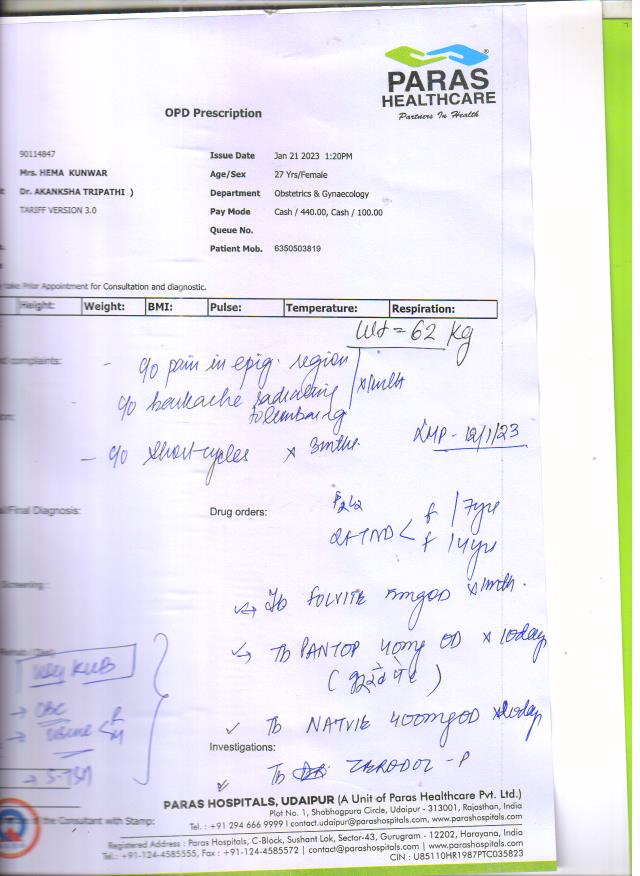 PARAS
HEALTHCARE
Partners In Health
OPD Prescription
90114847
Issue Date Jan 21 2023 1:20PM
Mrs. HEMA KUNWAR
Age/Sex 27 Yrs/Female
Dr. AKANKSHA TRIPATHI )
Department Obstetrics & Gynaecology
TARIFF VERSION 3.0
Pay Mode Cash / 440.00, Cash / 100.00
Queue No.
Patient Mob. 6350503819
take Prior Appointment for Consultation and diagnostic.
Height: Weight: BMI: Pulse: Temperature: Respiration:
Wt = 62 kg
complaints:
- c/o pain in epig. region
c/o backache radiating
x 1mth
- c/o short cycles x 3mths.
LMP - 12/1/23
/Final Diagnosis:
Drug orders:
P2L2
2FTND < f / 7yrs
f / 4yrs
Screening:
→ Tb FOLVITE 5mg OD x 1mth.
→ Tb PANTOP 40mg OD x 10day
USG KUB
→ CBC
→ Urine < R
M
→ S. TSH
✓ Tb 400mg OD
Investigations:
✓ Tb ZERODOL - P
of the Consultant with Stamp:
PARAS HOSPITALS, UDAIPUR (A Unit of Paras Healthcare Pvt. Ltd.)
Plot No. 1, Shobhagpura Circle, Udaipur - 313001, Rajasthan, India
Tel. : +91 294 666 9999 I contact.udaipur@parashospitals.com, www.parashospitals.com
Registered Address : Paras Hospitals, C-Block, Sushant Lok, Sector-43, Gurugram - 12202, Harayana, India
Tel.: +91-124-4585555, Fax : +91-124-4585572 | contact@parashospitals.com | www.parashospitals.com
CIN : U85110HR1987PTC035823